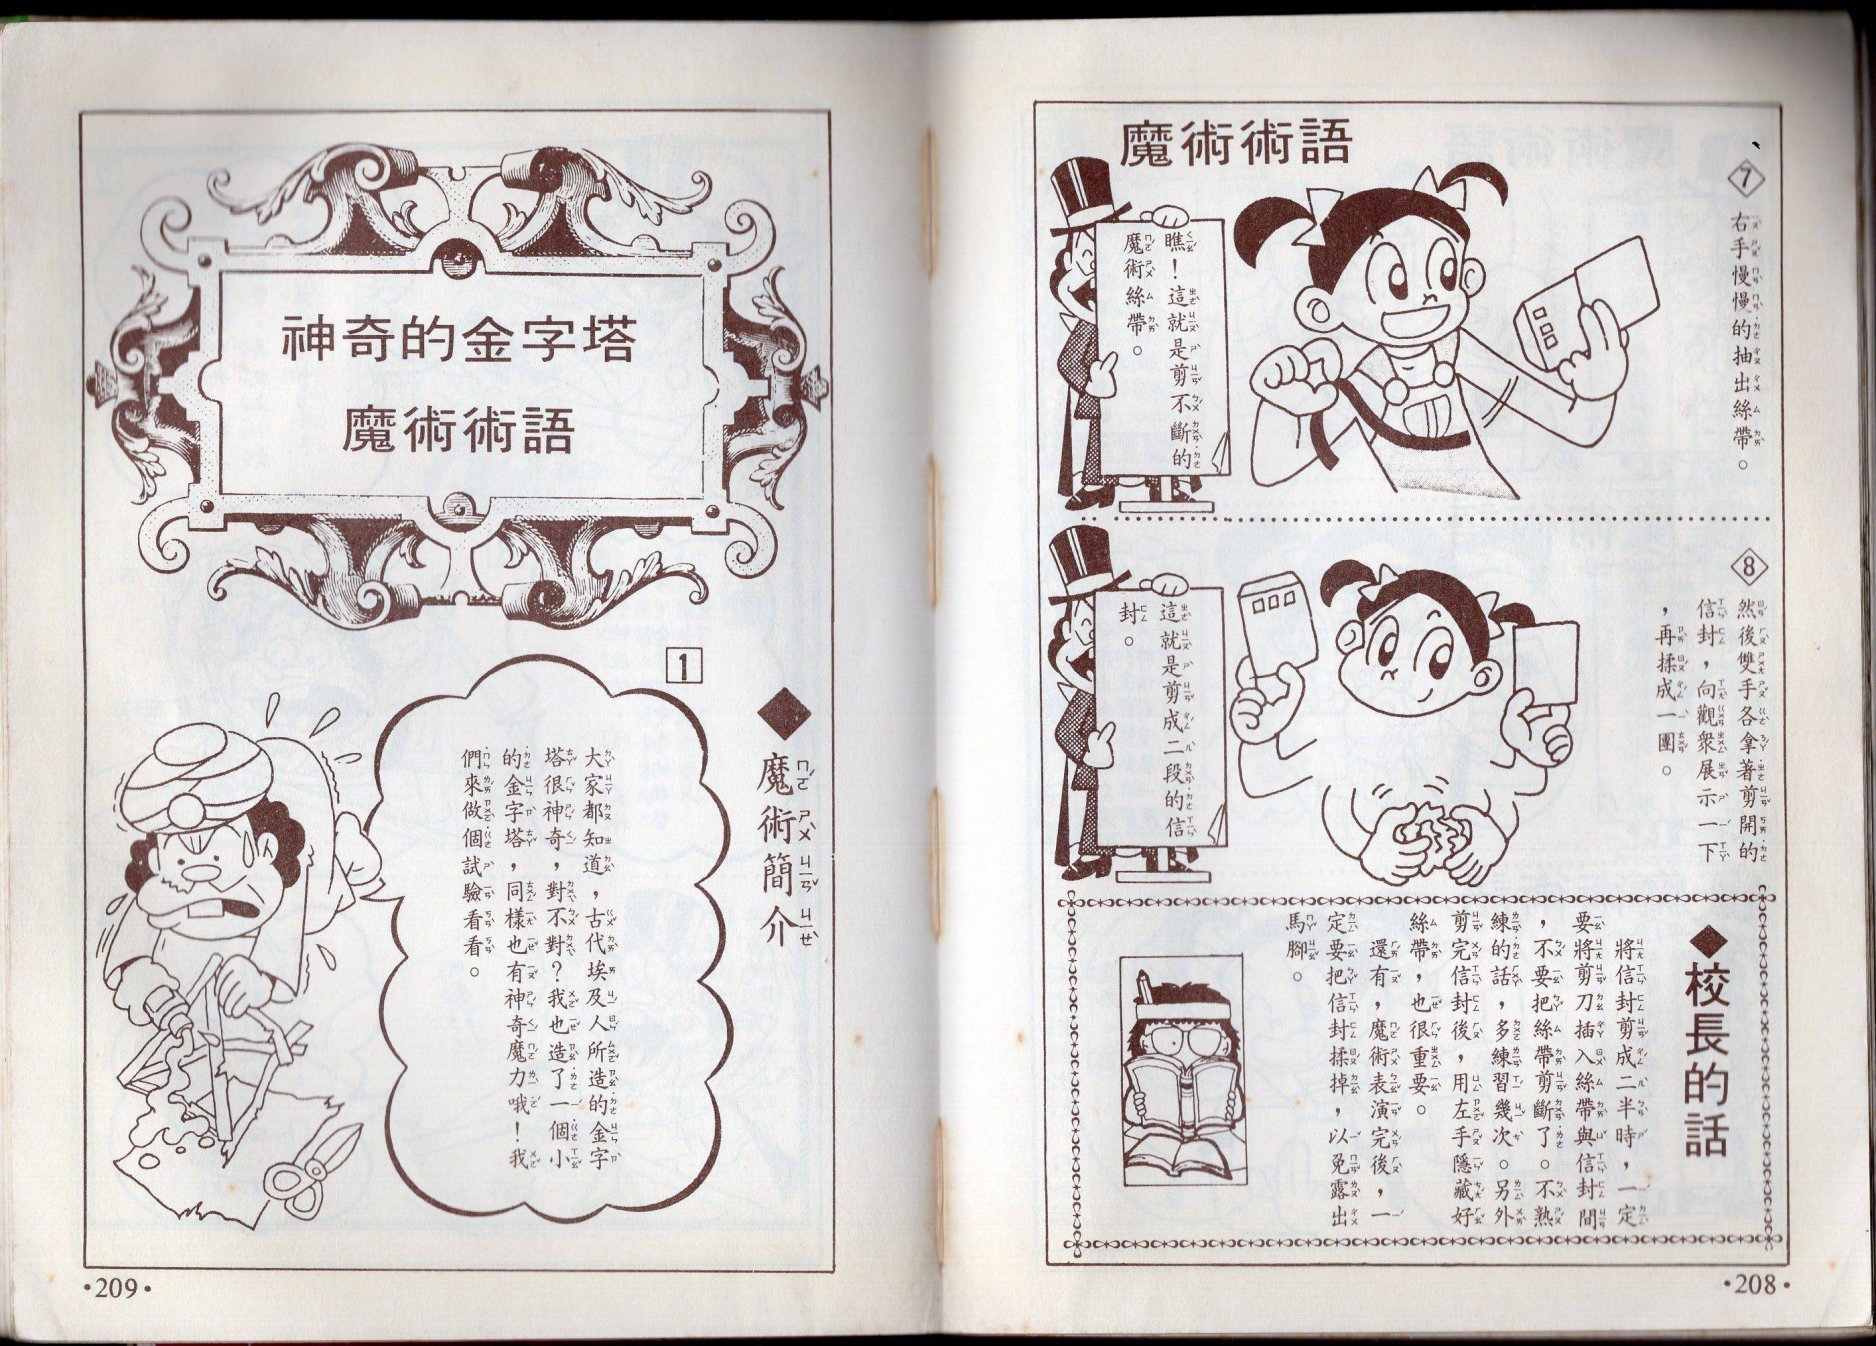 魔術術語
⑦
右手慢慢的抽出絲帶。
瞧!這就是剪不斷的
魔術絲帶。
⑧
然後雙手各拿著剪開的
信封,向觀眾展示一下
,再揉成一團。
這就是剪成二段的信
封。
◆校長的話
將信封剪成二半時,一定
要將剪刀插入絲帶與信封間
,不要把絲帶剪斷了。不熟
練的話,多練習幾次。另外
剪完信封後,用左手隱藏好
絲帶,也很重要。
還有,魔術表演完後,一
定要把信封揉掉,以免露出
馬腳。
•208•
神奇的金字塔
魔術術語
◆魔術簡介
1
大家都知道,古代埃及人所造的金字
塔很神奇,對不對?我也造了一個小
的金字塔,同樣也有神奇魔力哦!我
們來做個試驗看看。
•209•